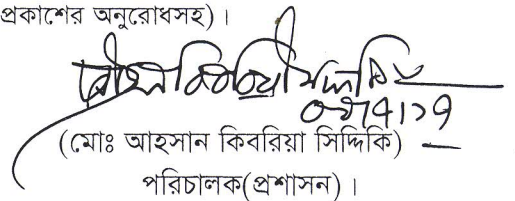 প্রকাশের অনুরোধসহ)।
(মোঃ আহসান কিবরিয়া সিদ্দিকি)
পরিচালক(প্রশাসন)।